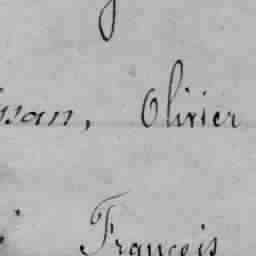 Olivier
François